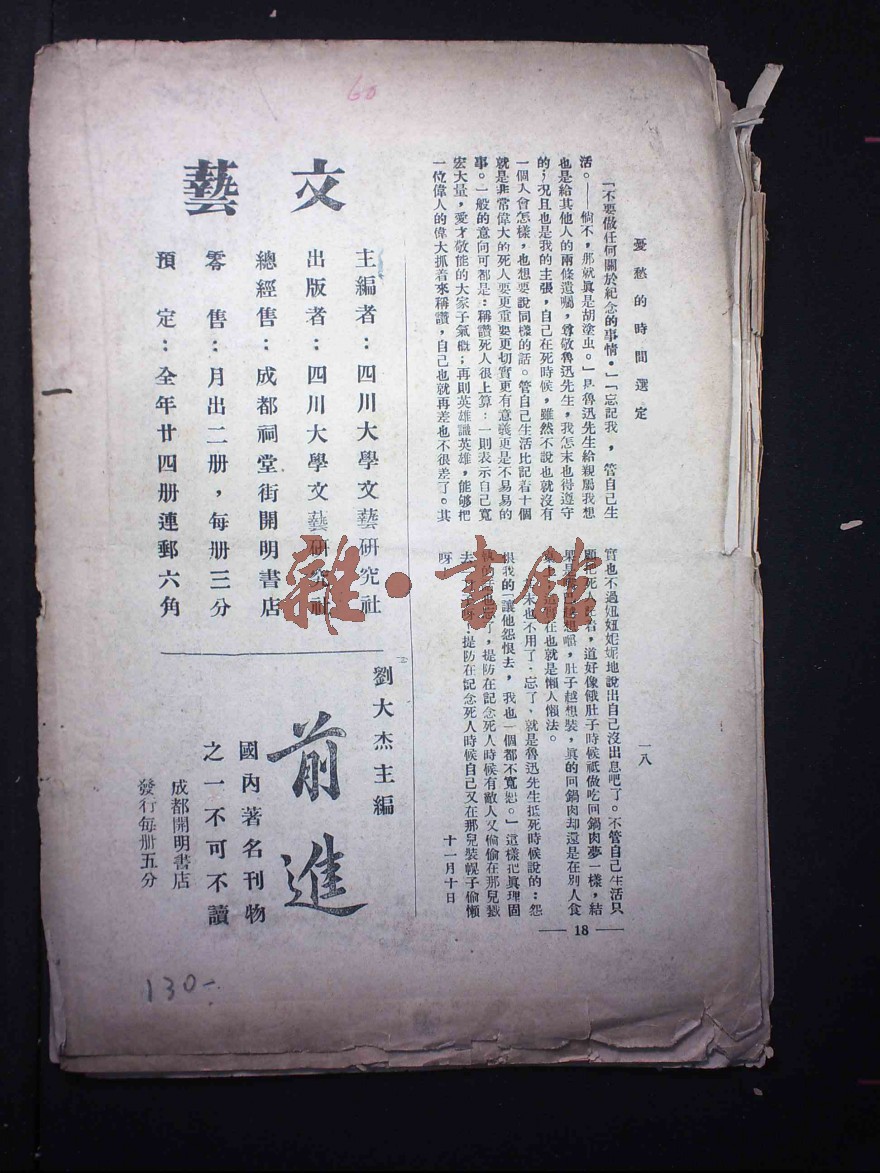 憂愁的時間選定
一八
「不要做任何關於紀念的事情。」「忘記我，管自己生
活。——倘不，那就眞是胡塗虫。」是魯迅先生給親屬我想
也是給其他人的兩條遺囑，尊敬魯迅先生，我怎末也得遵守
的；況且也是我的主張，自己在死時候，雖然不說也就沒有
一個人會怎樣，也想要說同樣的話。管自己生活比記着十個
就是非常偉大的死人要更重要更切實更有意義更是不易易的
事。一般的意向可都是：稱讚死人很上算：一則表示自己寬
宏大量，愛才敬能的大家子氣概；再則英雄識英雄，能够把
一位偉人的偉大抓着來稱讚，自己也就再差也不很差了。其
實也不過妞妞妮妮地說出自己沒出息吧了。不管自己生活只
顧把死人，道好像餓肚子時候祇做吃回鍋肉夢一樣，結
果是，肚子越想裝，眞的回鍋肉却還是在別人食
也就是懶人懶法。
末也不用了，忘了，就是魯迅先生抵死時候說的：怨
恨我的「讓他怨恨去，我也一個都不寬恕。」這樣把眞理固
提防在記念死人時候有敵人又偷偷在那兒戮
去提防在記念死人時候自己又在那兒裝幌子偷懶
呀
十一月十日
— 18 —
文藝
主編者：四川大學文藝研究社
出版者：四川大學文藝研究社
總經售：成都祠堂街開明書店
零售：月出二册，每册三分
預定：全年廿四册連郵六角
劉大杰主編
前進
國內著名刊物
之一不可不讀
成都開明書店
發行每册五分
60
130-
雜·書館